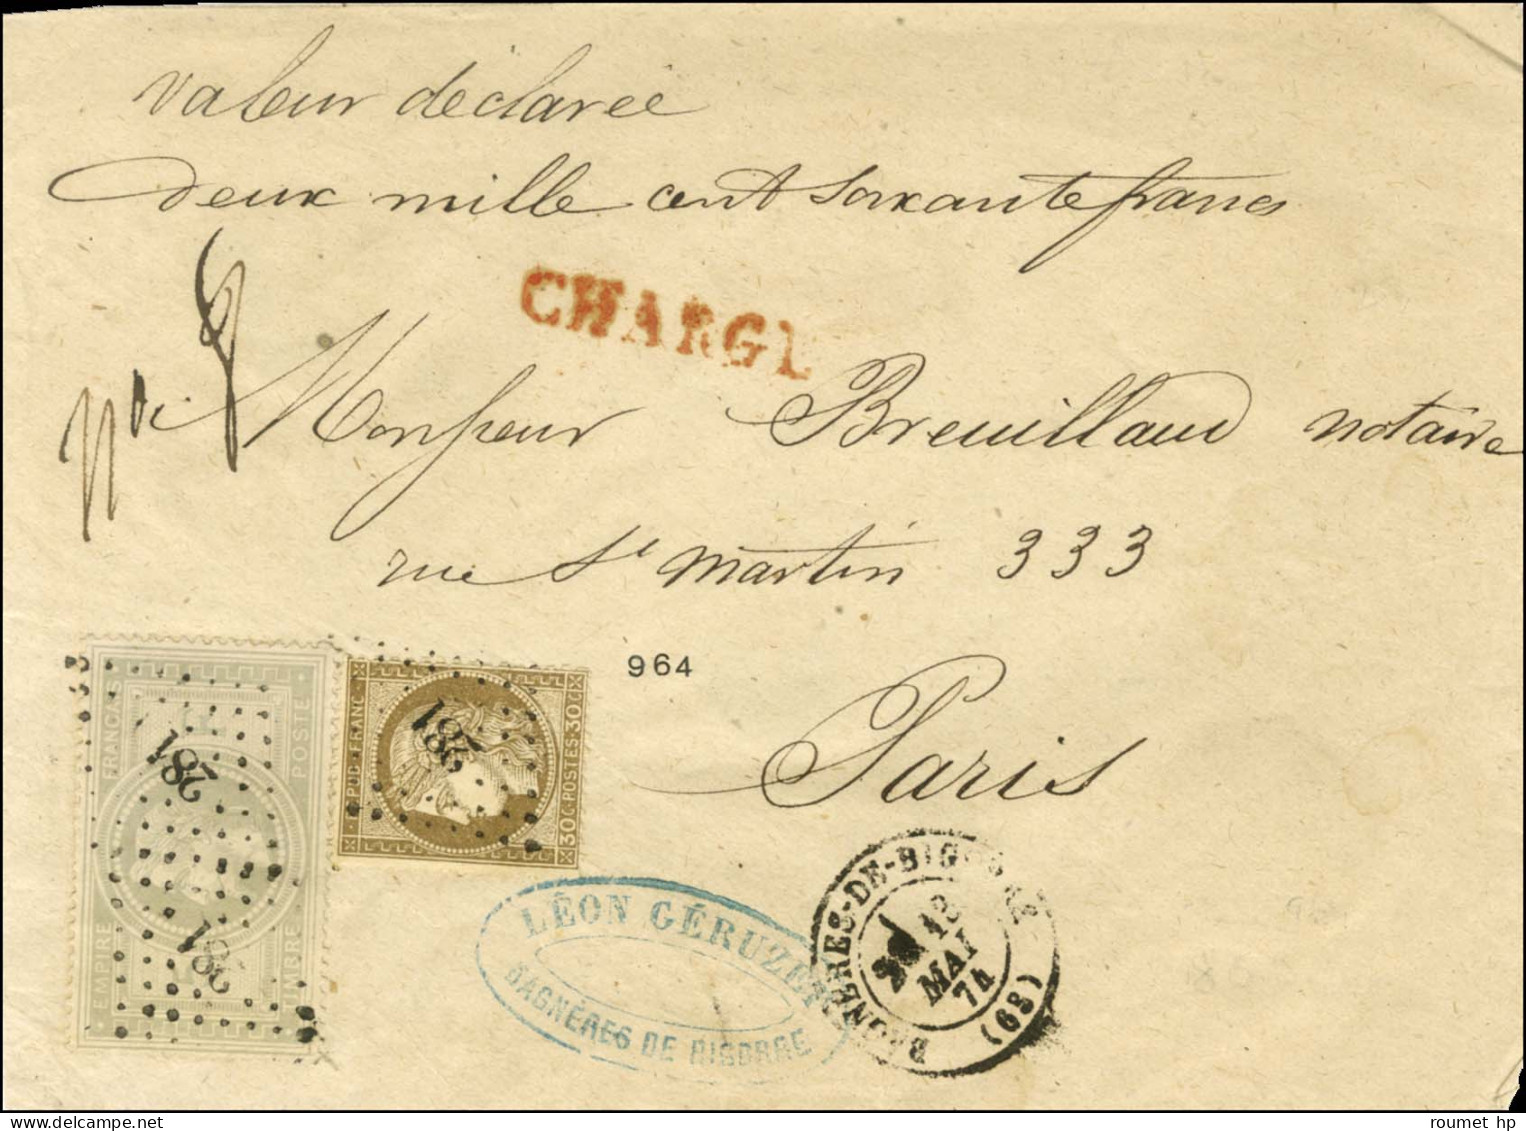 valeur déclarée
deux mille cent soixante francs
CHARGÉ
Monsieur Breuillaud notaire
rue St Martin 333
964
Paris
EMPIRE FRANCAIS
TIMBRE POSTE
281
281
REPUB. FRANC.
30 C. POSTES. 30 C.
281
LÉON GÉRUZET
BAGNÈRES DE BIGORRE
BAGNERES-DE-BIGORRE
18
MAI
74
(63)
roumet hp